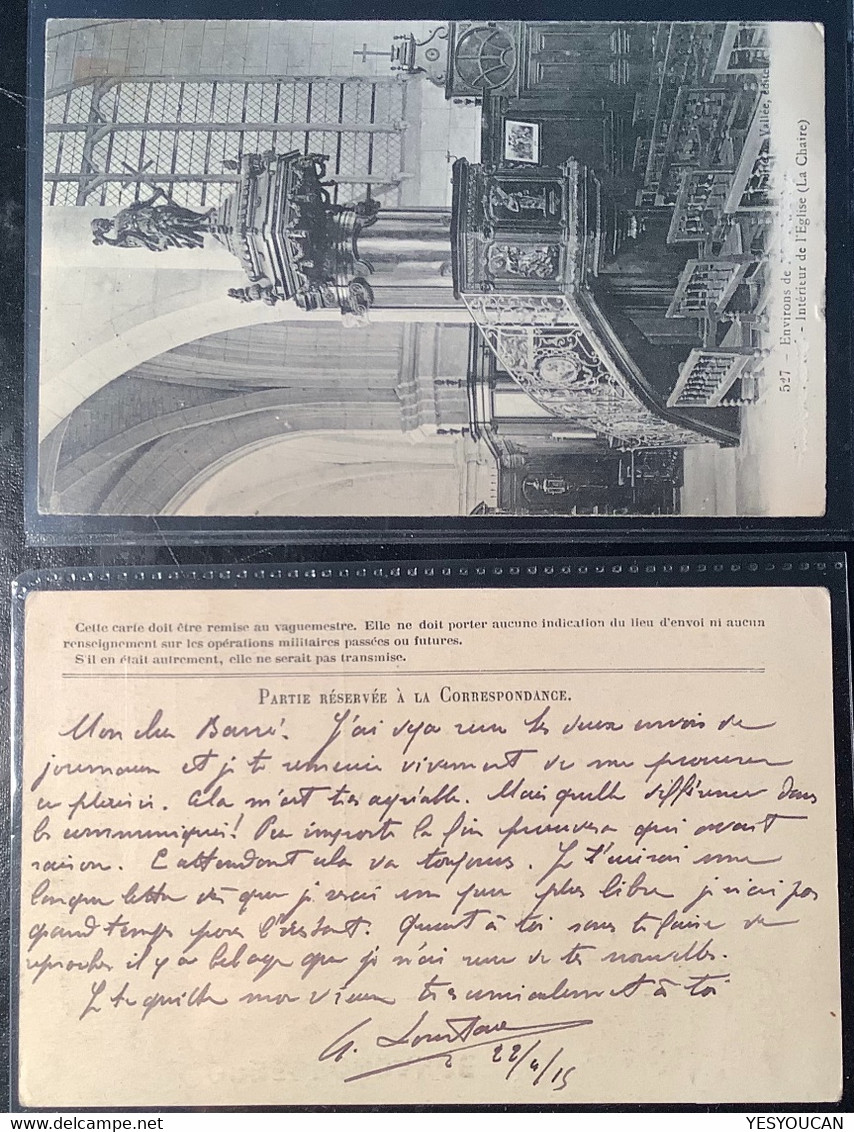 527 - Environs de
- Intérieur de l'Eglise (La Chaire)
Vallée, édite
Cette carte doit être remise au vaguemestre. Elle ne doit porter aucune indication du lieu d'envoi ni aucun
renseignement sur les opérations militaires passées ou futures.
S'il en était autrement, elle ne serait pas transmise.
PARTIE RÉSERVÉE À LA CORRESPONDANCE.
Mon cher Barré. J'ai déja reçu tes deux envois de
journaux et je te remercie vivement de me procurer
ce plaisir. Cela m'est très agréable. Mais quelle différence dans
les communiqués! Peu importe la fin prouvera qui avait
raison. En attendant cela va toujours. Je t'écrirai une
longue lettre dès que je serai un peu plus libre je n'ai pas
grand temps pour l'instant. Quant à toi sans te faire de
reproches il y a belle age que je n'ai reçu de tes nouvelles.
Je te quitte mon vieux très amicalement à toi
22/4/15
YESYOUCAN